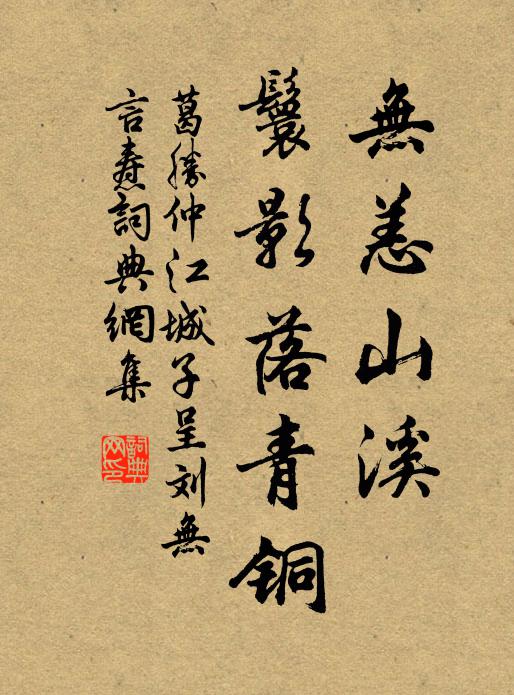 無恙山溪
鬟影落青铜
葛勝仲江城子呈刘無
言燾詞典網集
詞典
网印